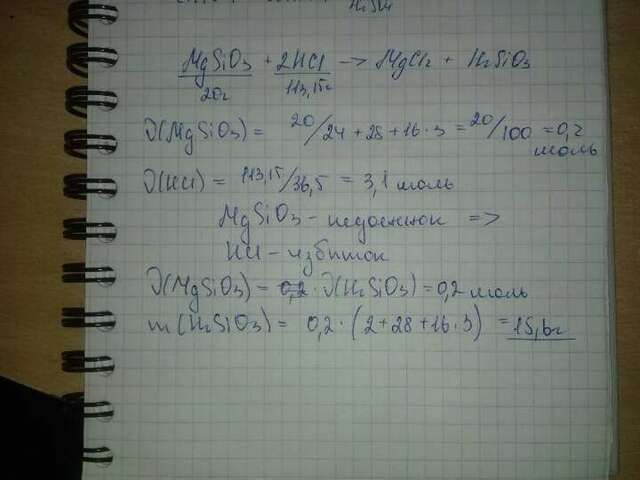 H₂SiO
MgSiO₃ + 2HCl → MgCl₂ + H₂SiO₃
20г 113,15г
ϑ(MgSiO₃) = 20/24 + 28 + 16 · 3 = 20/100 = 0,2
моль
ϑ(HCl) = 113,15/36,5 = 3,1 моль
MgSiO₃ - недостаток =>
HCl - избыток
ϑ(MgSiO₃) = ϑ(H₂SiO₃) = 0,2 моль
m(H₂SiO₃) = 0,2 · (2 + 28 + 16 · 3) = 15,6г